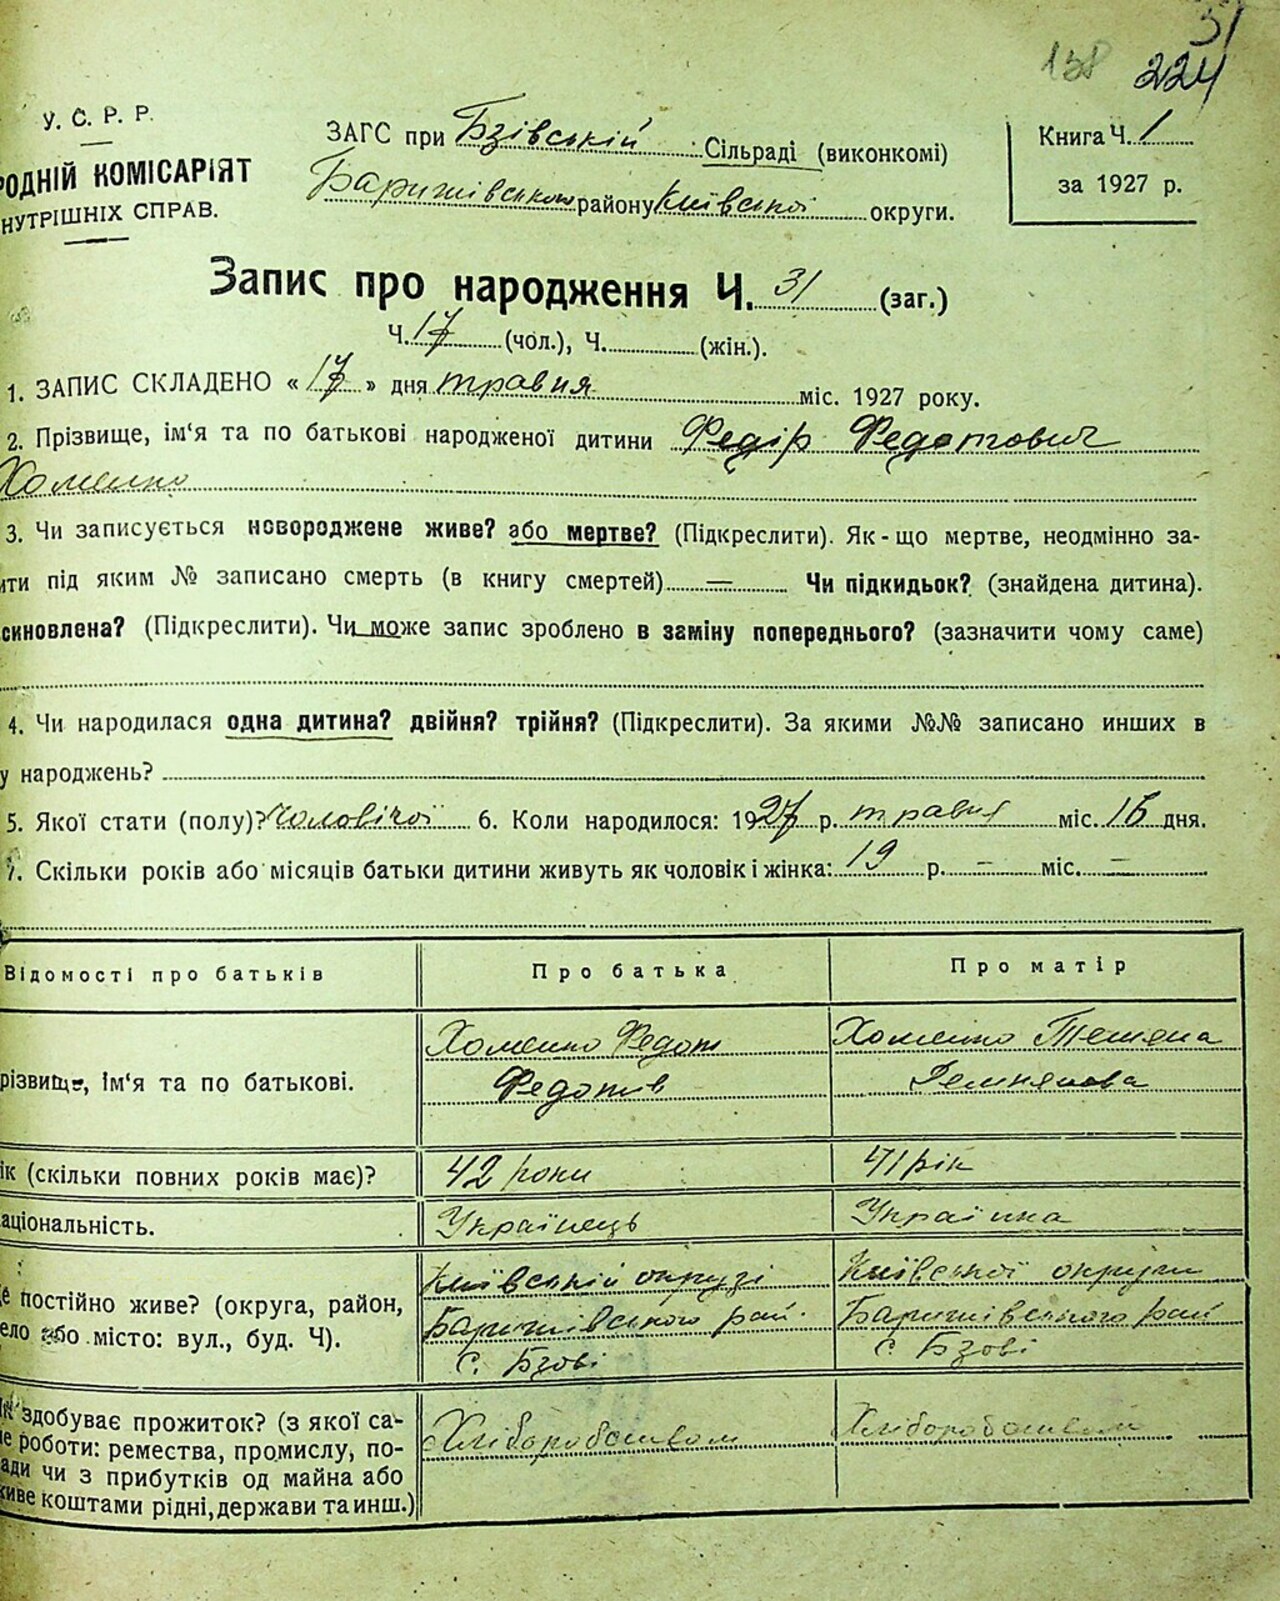 31
158 224
У. С. Р. Р.
РОДНІЙ КОМІСАРІЯТ
НУТРІШНІХ СПРАВ.
ЗАГС при Бзівській Сільраді (виконкомі)
Баришівського району Київської округи.
Книга Ч. 1
за 1927 р.
Запис про народження Ч. 31 (заг.)
Ч. 17 (чол.), Ч. (жін.).
1. ЗАПИС СКЛАДЕНО « 17 » дня травня міс. 1927 року.
2. Прізвище, ім‘я та по батькові народженої дитини Федір Федотович
Хоменко
3. Чи записується новороджене живе? або мертве? (Підкреслити). Як-що мертве, неодмінно за-
ити під яким № записано смерть (в книгу смертей) = Чи підкидьок? (знайдена дитина).
синовлена? (Підкреслити). Чи може запис зроблено в заміну попереднього? (зазначити чому саме)
4. Чи народилася одна дитина? двійня? трійня? (Підкреслити). За якими №№ записано инших в
у народжень?
5. Якої стати (полу)? Чоловічої 6. Коли народилось: 1927 р. травня міс. 16 дня.
7. Скільки років або місяців батьки дитини живуть як чоловік і жінка: 19 р. — міс. —
Відомості про батьків Про батька Про матір
різвище, ім‘я та по батькові. Хоменко Федот Хоменко Тетяна
Федотів
ік (скільки повних років має)? 42 роки 41 рік
аціональність. Українець Українка
Київській окрузі Київської округи
е постійно живе? (округа, район, Баришівського рай. Баришівського рай
ело або місто: вул., буд. Ч). с. Бзові с. Бзові
здобуває прожиток? (з якої са- Хліборобством Хліборобством
ме роботи: ремества, промислу, по-
ади чи з прибутків од майна або
живе коштами рідні, держави та инш.)